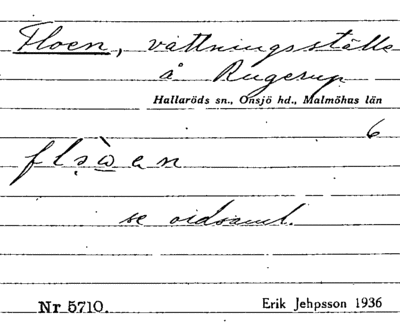 Floen, vattningsställe
å Rugerup
Hallaröds sn., Onsjö hd., Malmöhus län
6
se ordsaml.
Nr 5710. Erik Jehpsson 1936